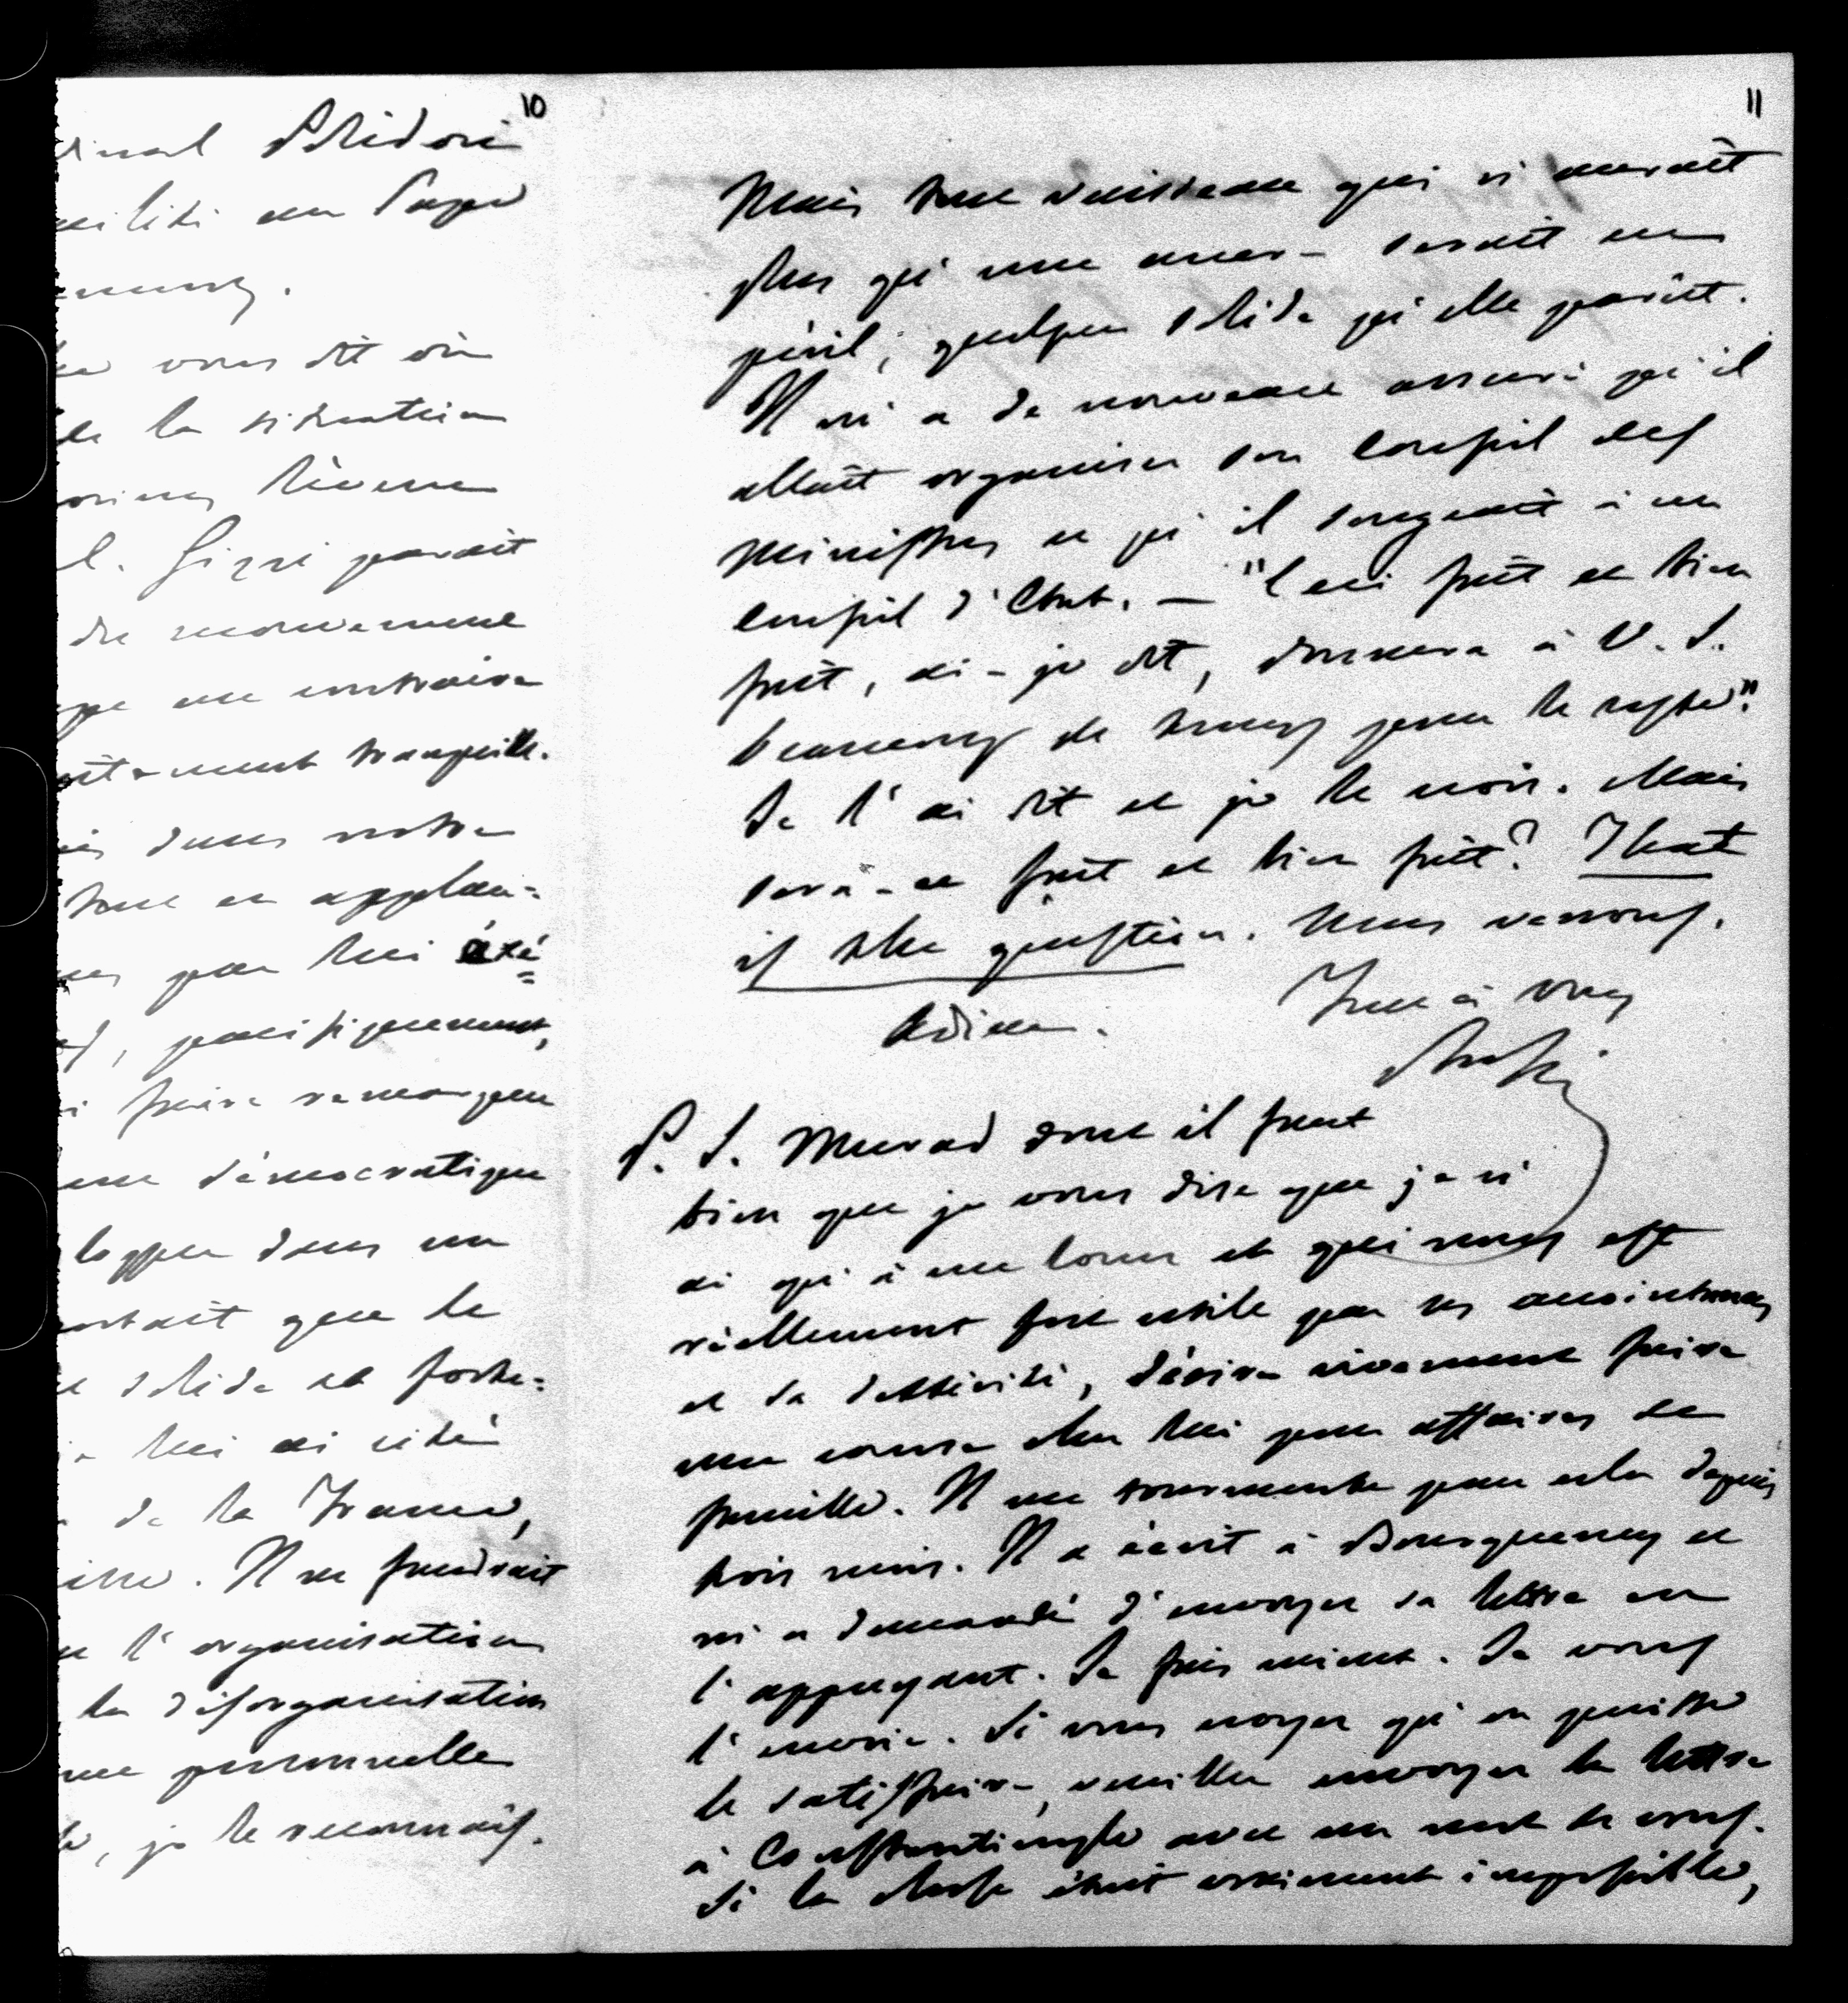 10
dinal Polidori
au Pape
vous dit où
de la situation
l. Gizzi paraît
du mouvement
au contraire
tranquille.
dans notre
applau=
par lui été
, pacifiquement,
faire remarquer
démocratique
dans un
que le
solide et forte=
lui ai cité
de la France,
Il ne faudrait
l'organisation
la désorganisation
personnelle
, je le reconnais.
11
Mais tout vaisseau qui n'aurait
plus qu'une ancre serait en
péril, quelque solide qu'elle parût.
Il m'a de nouveau assuré qu'il
allait organiser son Conseil des
Ministres et qu'il songeait à un
Conseil d'Etat. — "Ceci fait et bien
fait, ai-je dit, donnera à V. S.
beaucoup de temps pour le reste."
Je l'ai dit et je le crois. Mais
sera-ce fait et bien fait? That
is the question. Nous verrons.
Adieu. Tout à vous
Rossi
P. S. Murad dont il faut
bien que je vous dise que je n'
ai qu'à me louer et qui nous est
réellement fort utile par ses accointances
et sa dextérité, désire vivement faire
une course chez lui pour affaires de
famille. Il me tourmente pour cela depuis
trois mois. Il a écrit à Bourqueney et
m'a demandé d'envoyer sa lettre en
l'appuyant. Je fais mieux. Je vous
l'envoie. Si vous croyez qu'on puisse
le satisfaire, veuillez envoyer la lettre
à Constantinople avec un mot de vous.
Si la chose était vraiment impossible,